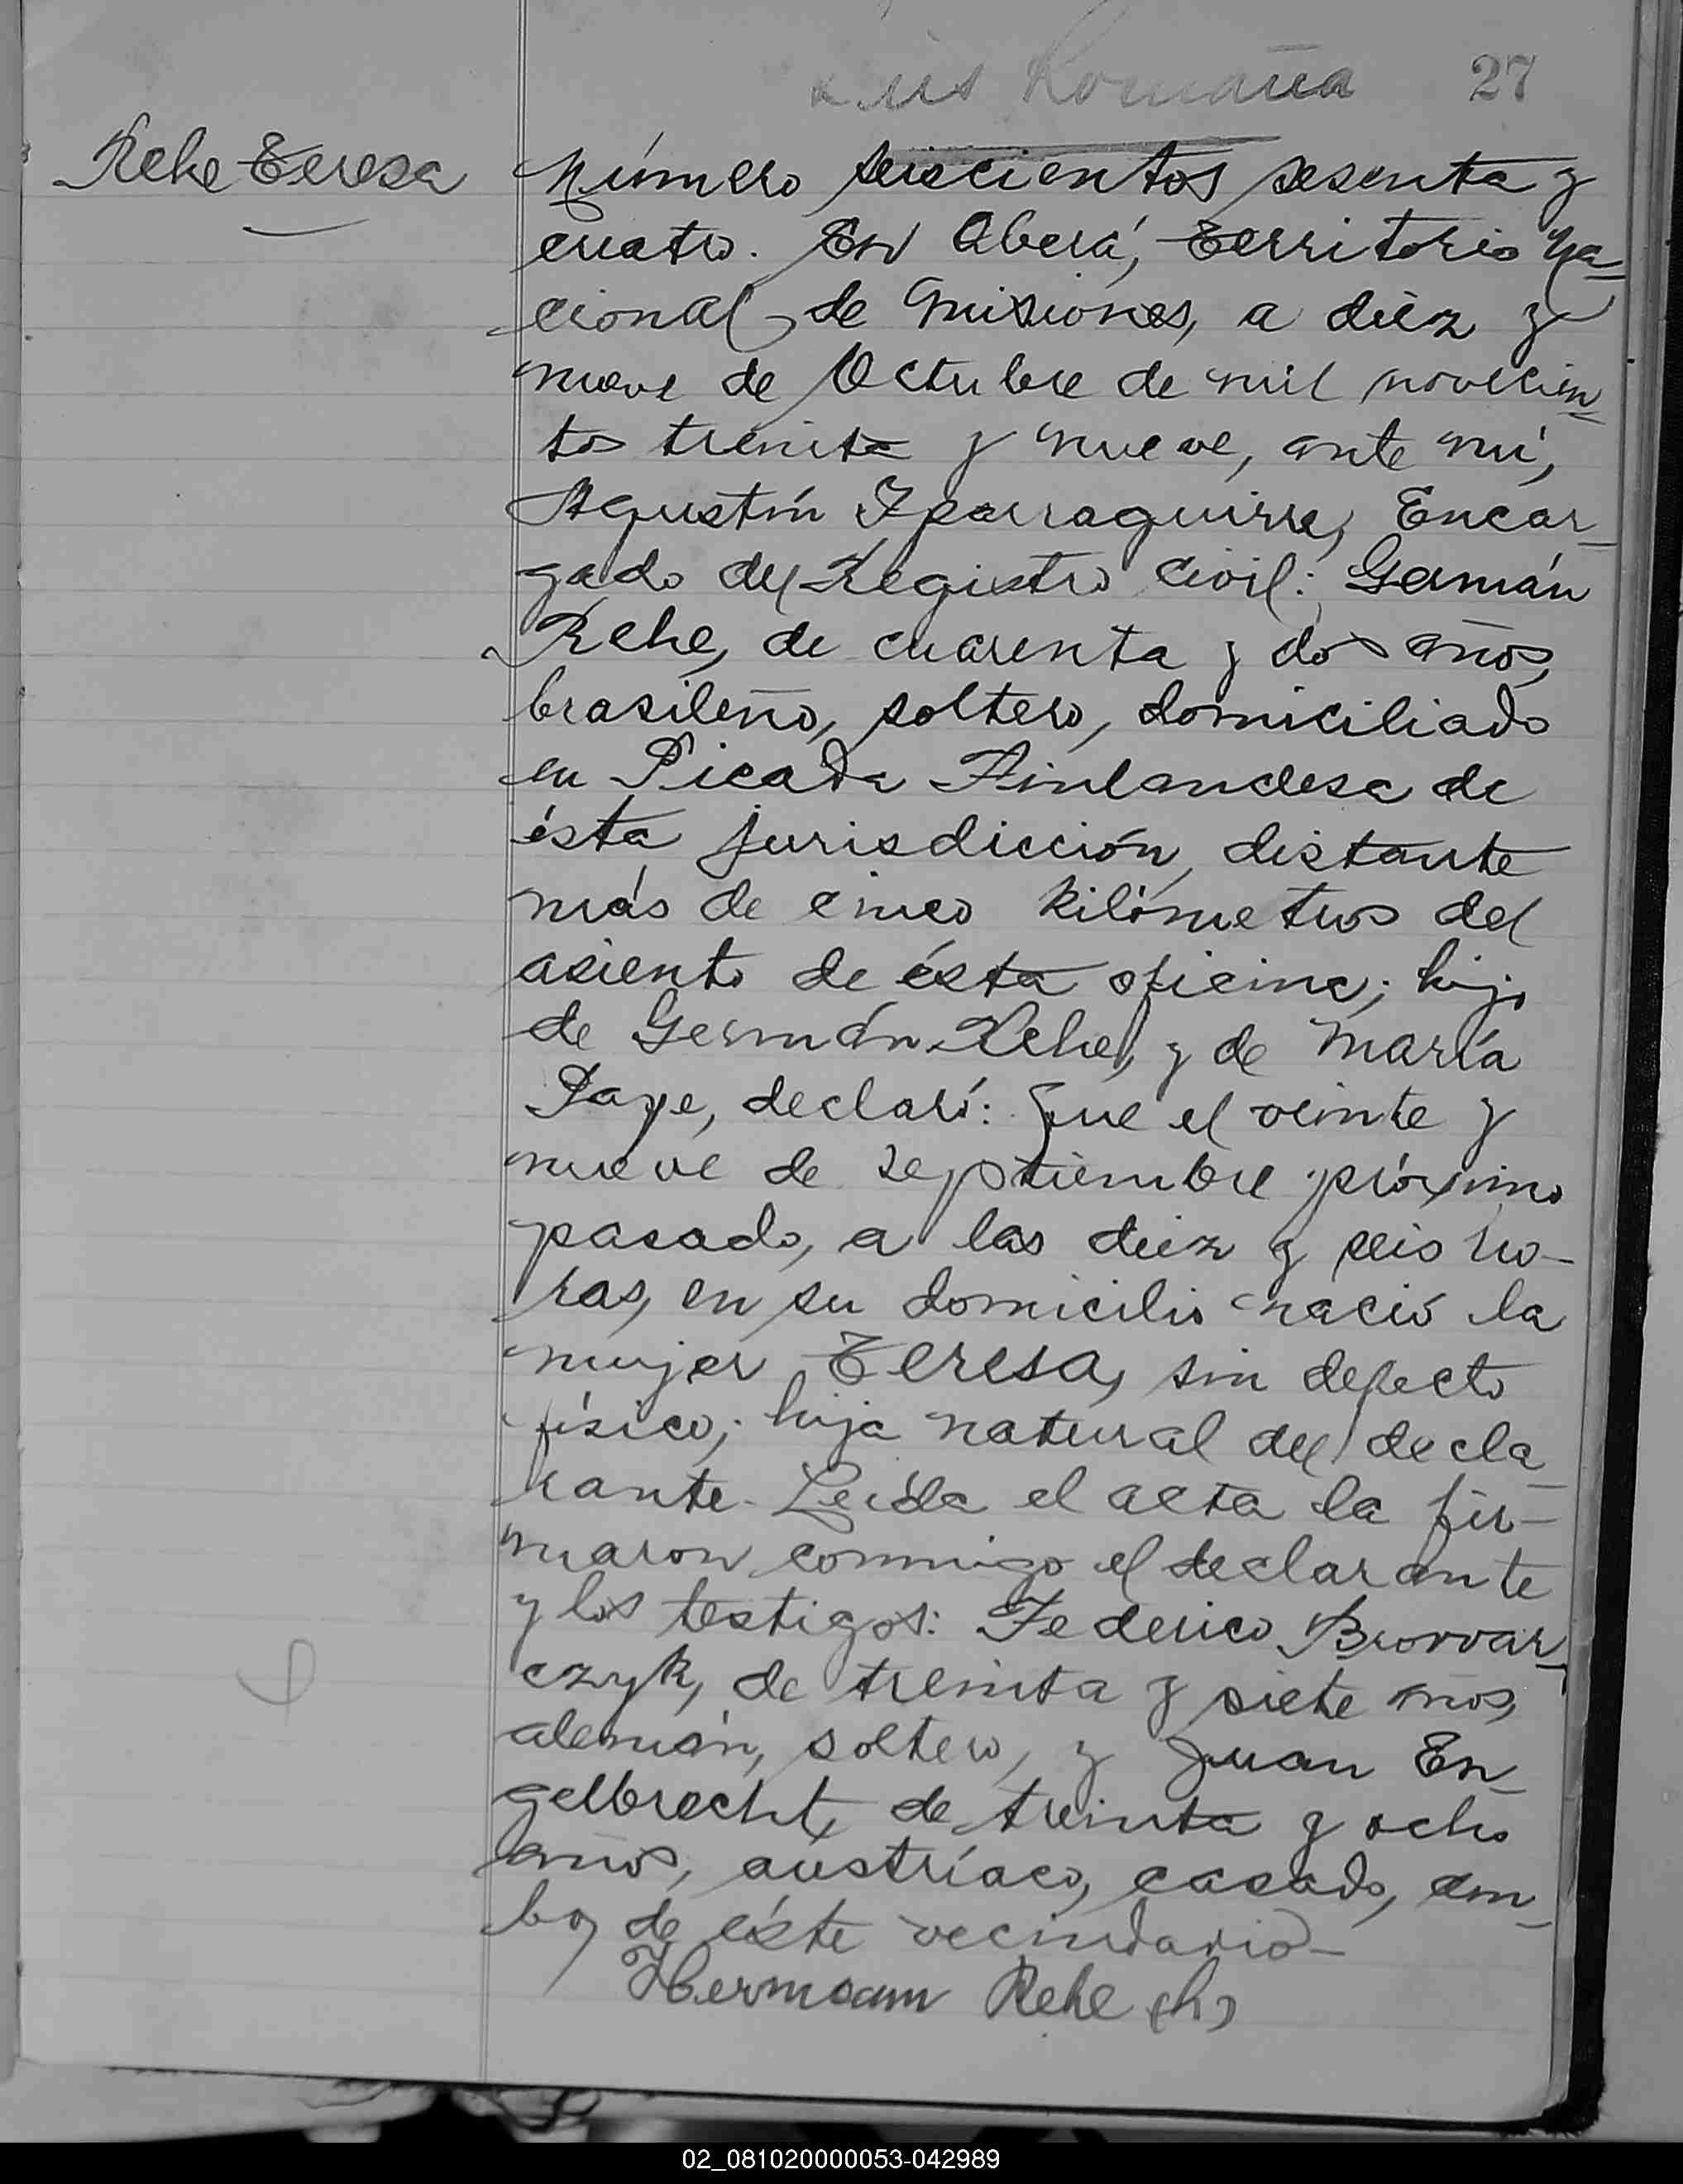 Luis Romaña 27
Rehe Teresa
Número seiscientos sesenta y
cuatro. En Oberá, Territorio Na-
cional de Misiones, a diez y
nueve de Octubre de mil novecien-
tos treinta y nueve, ante mí,
Agustín Iparraguirre, Encar-
gado del Registro Civil: Germán
Rehe, de cuarenta y dos años,
brasileño, soltero, domiciliado
en Picada Finlandesa de
ésta jurisdicción, distante
más de cinco kilómetros del
asiento de ésta oficina; hijo
de Germán Rehe, y de María
Pape, declaró: Que el veinte y
nueve de septiembre próximo
pasado, a las diez y seis ho-
ras, en su domicilio nació la
mujer Teresa, sin defecto
físico; hija natural del decla-
rante. Leída el acta la fir-
maron conmigo el declarante
y los testigos: Federico Browar-
czyk, de treinta y siete años,
alemán, soltero, y Juan En-
gelbrecht, de treinta y ocho
años, austríaco, casado, am-
bos de éste vecindario-
Hermann Rehe (h)
02_081020000053-042989